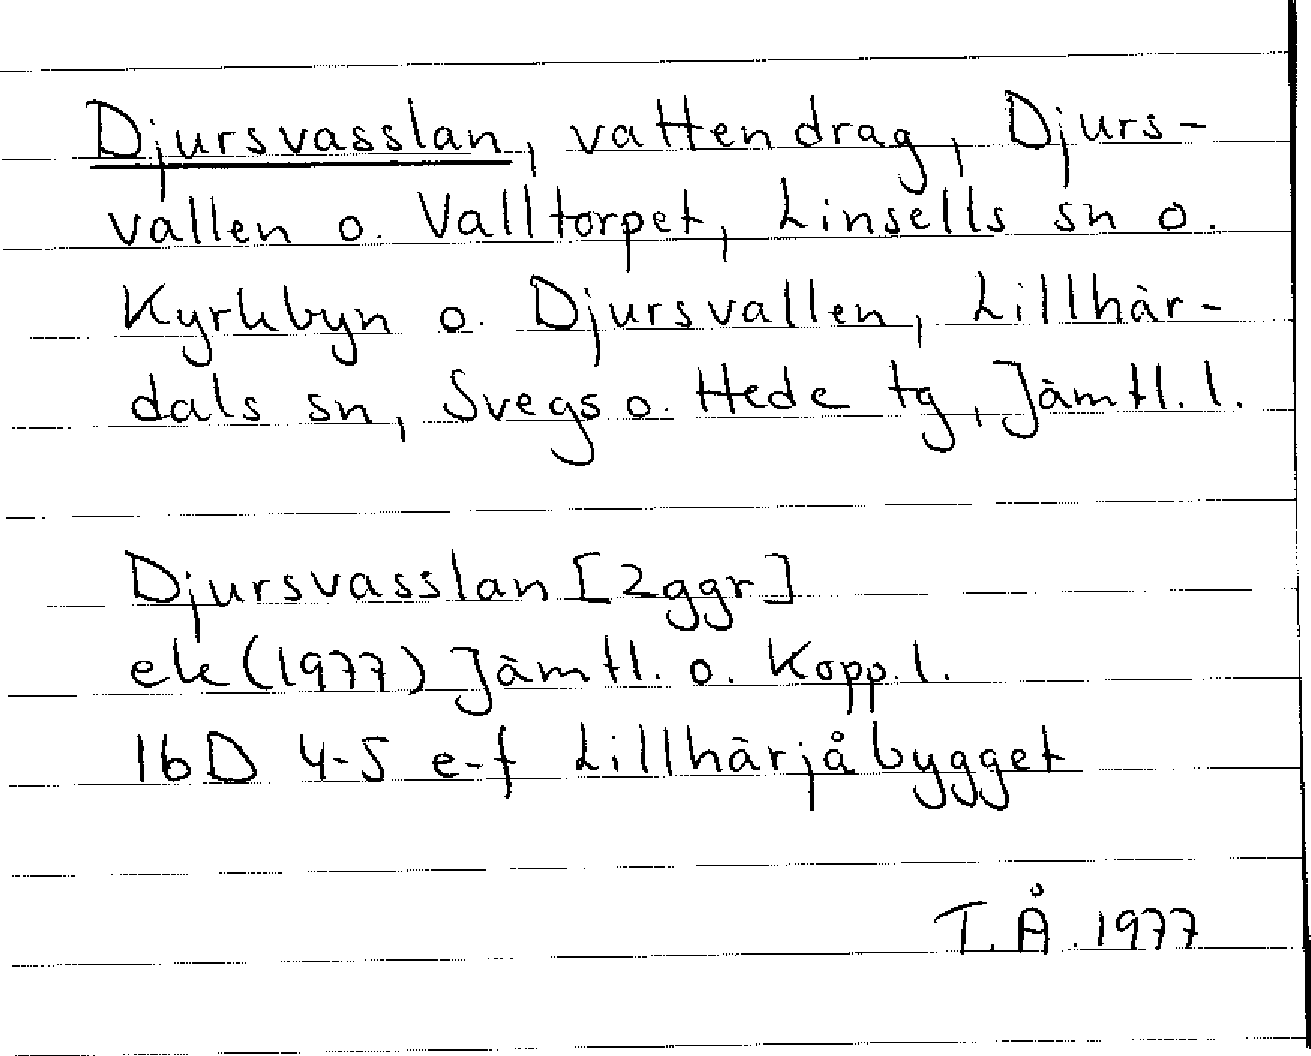 Djursvasslan, vattendrag, Djurs-
vallen o. Valltorpet, Linsells sn o.
Kyrkbyn o. Djursvallen, Lillhär-
dals sn, Svegs o. Hede tg, Jämtl. l.
Djursvasslan [2ggr]
ek (1977) Jämtl. o. Kopp. l.
16D 4-5 e-f Lillhärjåbygget
T.Å. 1977